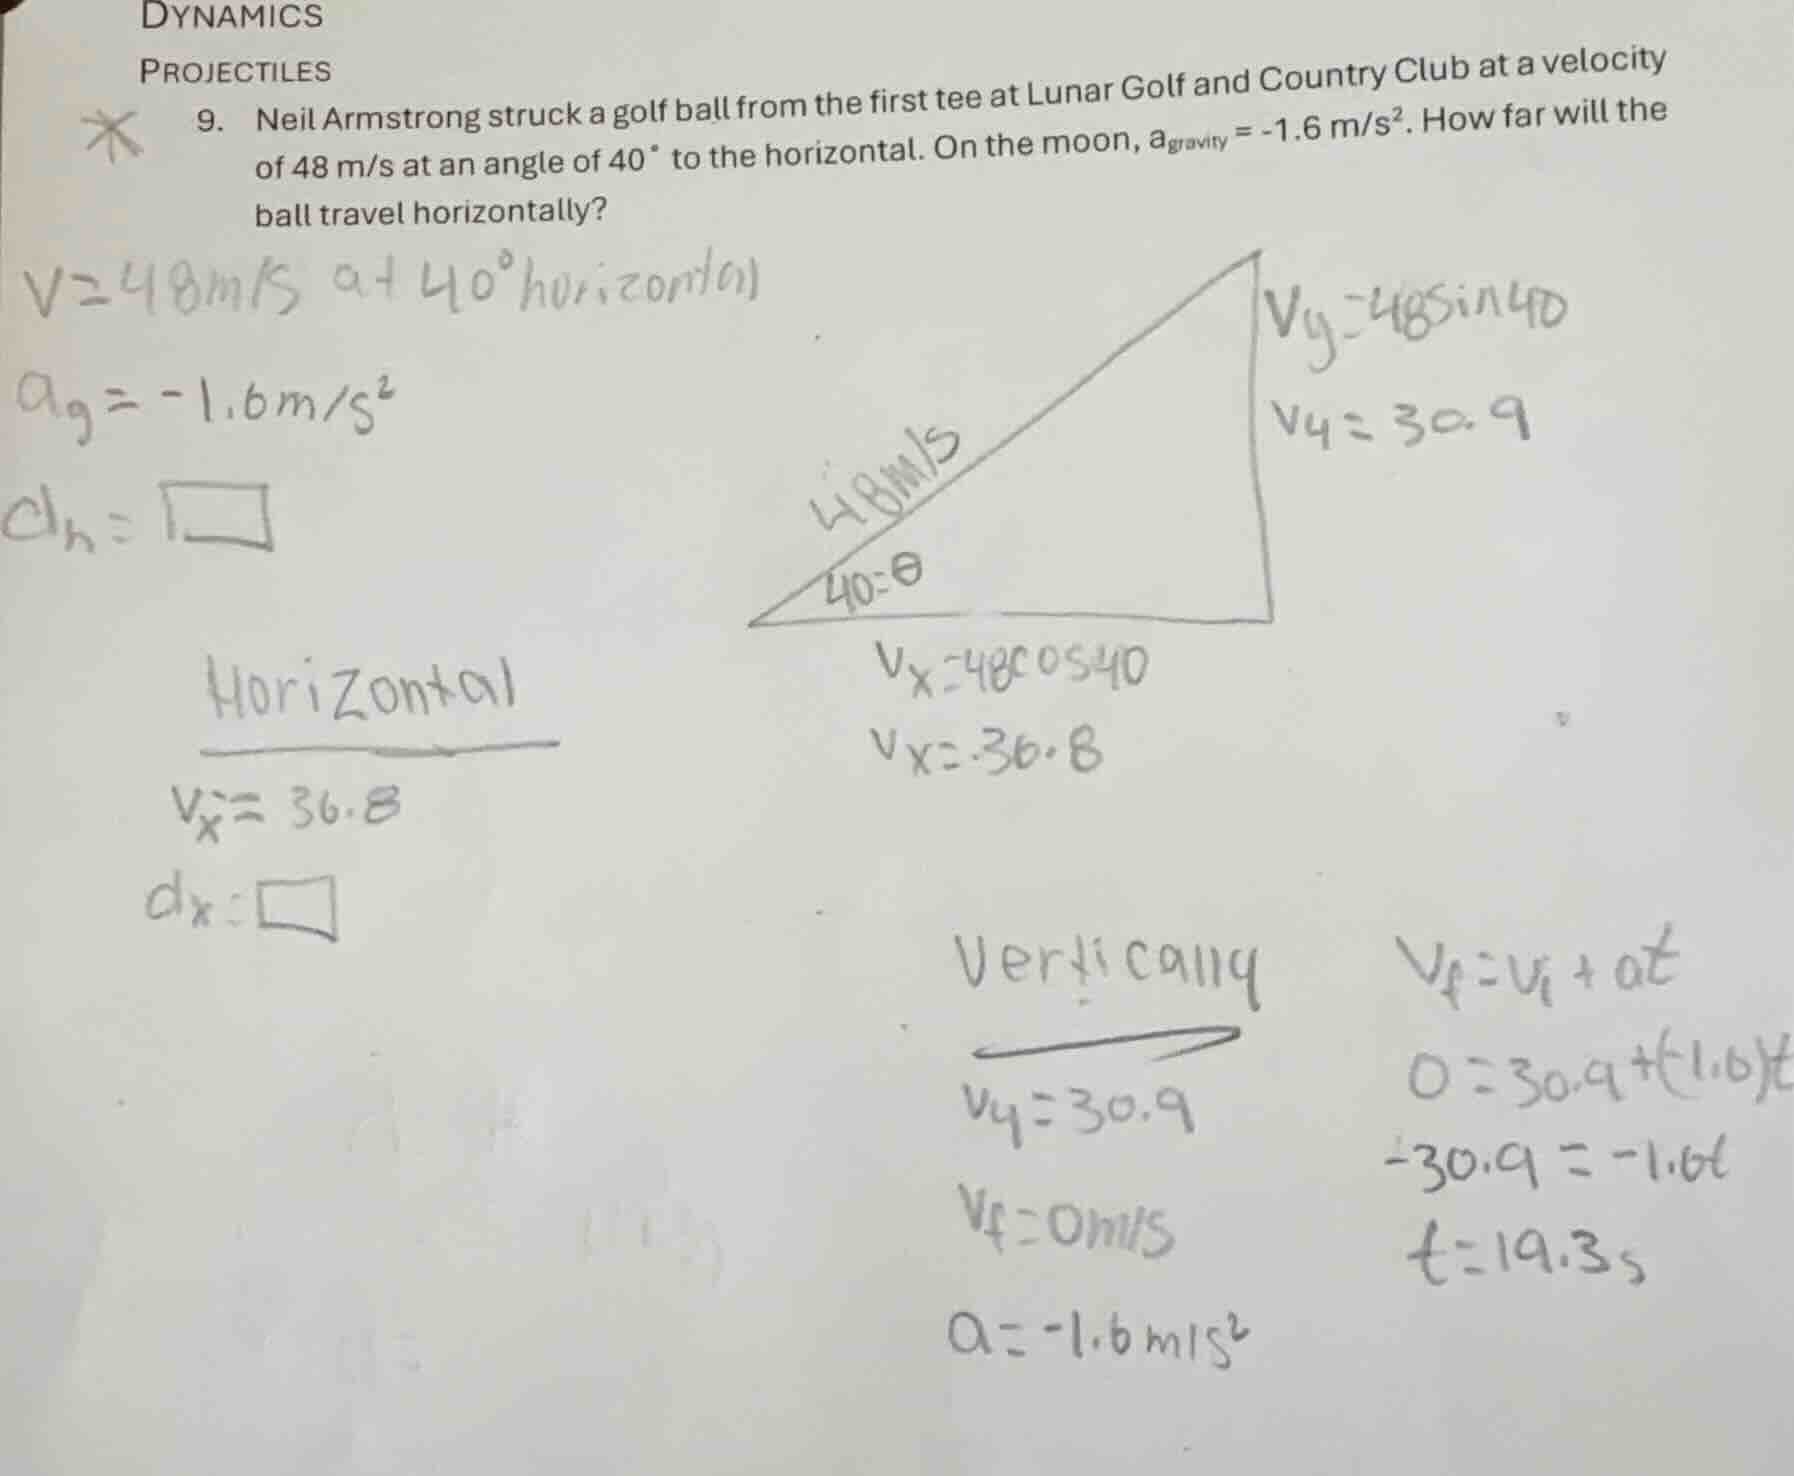 DYNAMICS
PROJECTILES
9. Neil Armstrong struck a golf ball from the first tee at Lunar Golf and Country Club at a velocity
of 48 m/s at an angle of 40° to the horizontal. On the moon, agravity = -1.6 m/s². How far will the
ball travel horizontally?
V=48m/s at 40° horizontal
ag = -1.6m/s²
dh =
48m/s
40=θ
Vy=48sin40
Vy = 30.9
Vx=48cos40
Vx= 36.8
Horizontal
Vx = 36.8
dx =
Vertically
Vy = 30.9
Vf = 0m/s
a = -1.6 m/s²
Vf = Vi + at
0 = 30.9 + (-1.6)t
-30.9 = -1.6t
t = 19.3s